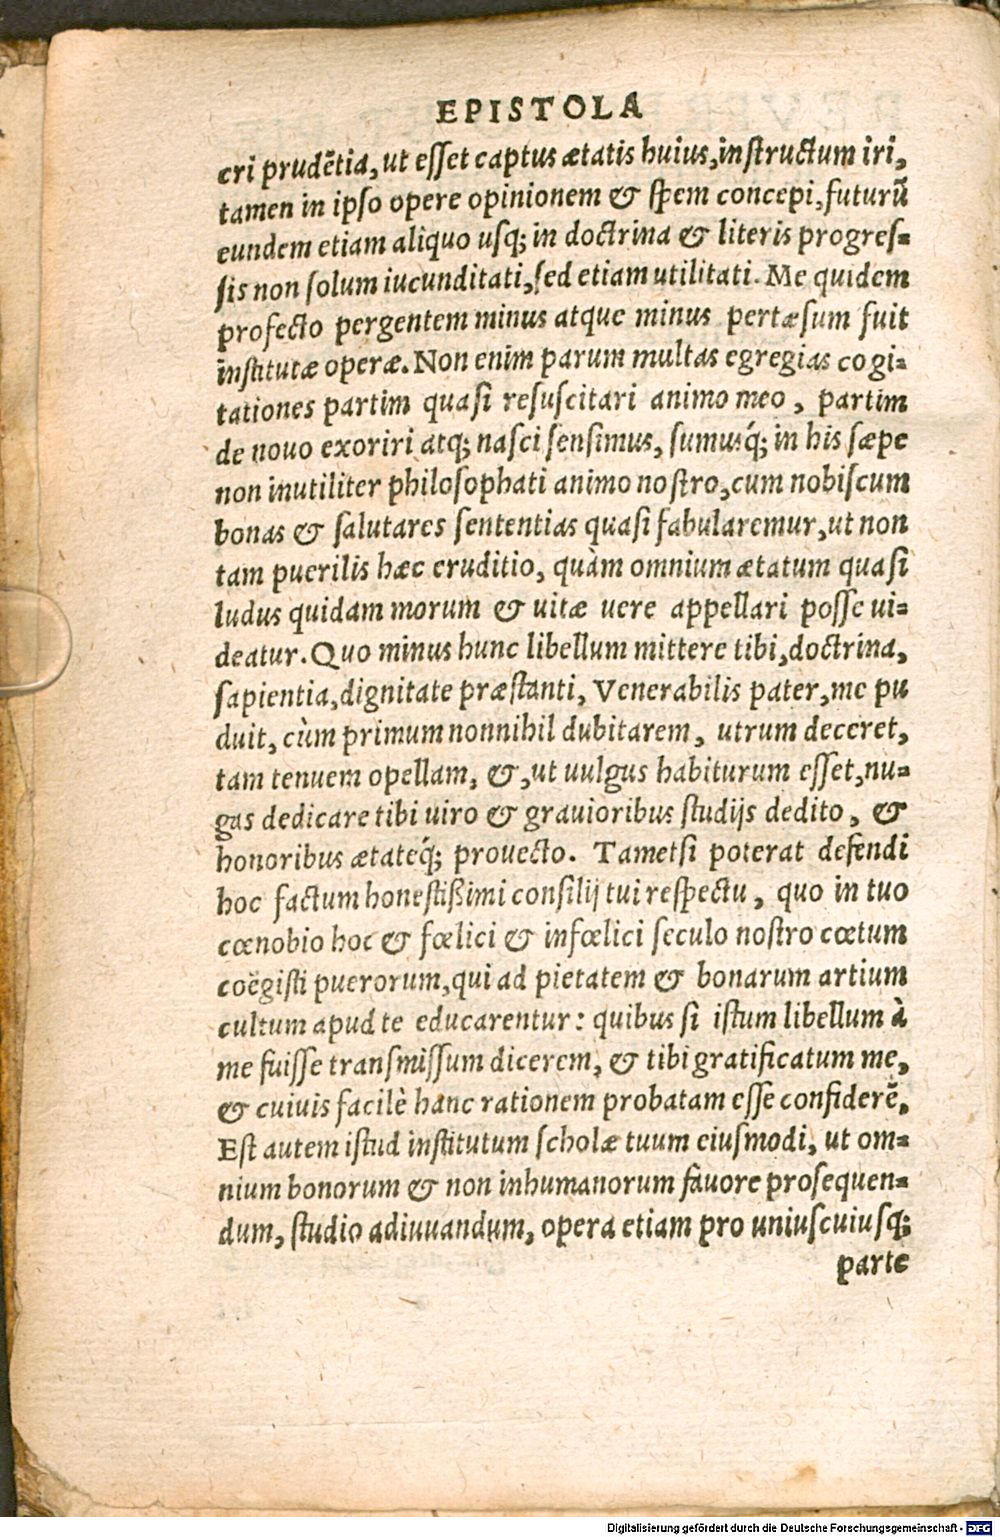 EPISTOLA
cri prudētia, ut esset captus ætatis huius, instructum iri,
tamen in ipso opere opinionem & spem concepi, futurū
eundem etiam aliquo usq; in doctrina & literis progres-
sis non solum iucunditati, sed etiam utilitati. Me quidem
profecto pergentem minus atque minus pertæsum fuit
institutæ operæ. Non enim parum multas egregias cogi-
tationes partim quasi resuscitari animo meo, partim
de nouo exoriri atq; nasci sensimus, sumusq́; in his sæpe
non inutiliter philosophati animo nostro, cum nobiscum
bonas & salutares sententias quasi fabularemur, ut non
tam puerilis hæc eruditio, quàm omnium ætatum quasi
ludus quidam morum & uitæ uere appellari posse ui-
deatur. Quo minus hunc libellum mittere tibi, doctrina,
sapientia, dignitate præstanti, Venerabilis pater, me pu
duit, cùm primum nonnihil dubitarem, utrum deceret,
tam tenuem opellam, &, ut uulgus habiturum esset, nu-
gas dedicare tibi uiro & grauioribus studijs dedito, &
honoribus ætateq́; prouecto. Tametsi poterat defendi
hoc factum honestißimi consilij tui respectu, quo in tuo
cœnobio hoc & fœlici & infœlici seculo nostro cœtum
coëgisti puerorum, qui ad pietatem & bonarum artium
cultum apud te educarentur: quibus si istum libellum à
me fuisse transmissum dicerem, & tibi gratificatum me,
& cuiuis facilè hanc rationem probatam esse confiderē.
Est autem istud institutum scholæ tuum eiusmodi, ut om-
nium bonorum & non inhumanorum fauore prosequen-
dum, studio adiuuandum, opera etiam pro uniuscuiusq;
parte
Digitalisierung gefördert durch die Deutsche Forschungsgemeinschaft - DFG